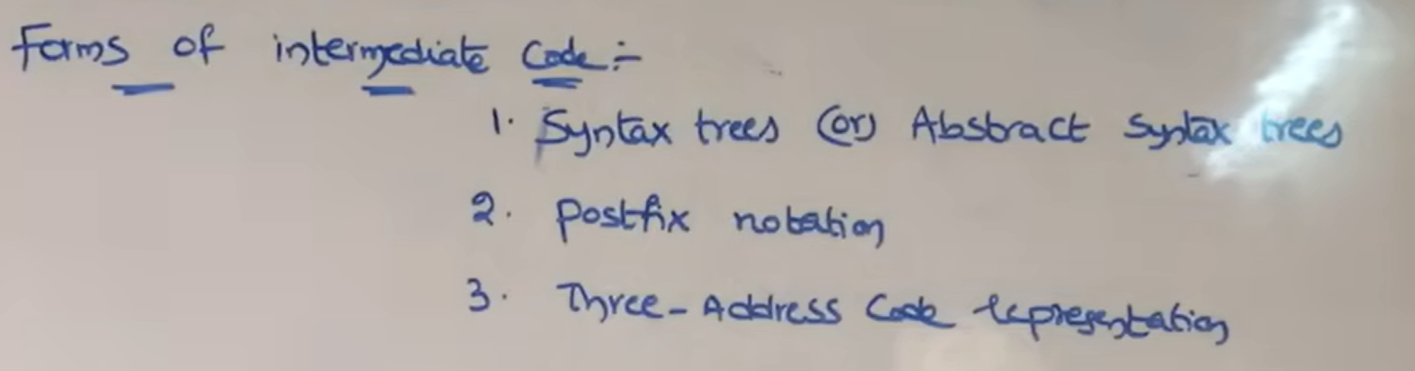 Forms of intermediate Code :-
1. Syntax trees (or) Abstract Syntax trees
2. Postfix notation
3. Three-Address Code representation